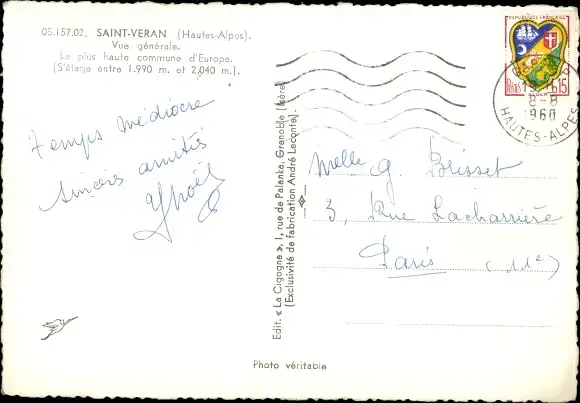 05.157.02. SAINT-VERAN (Hautes-Alpes).
Vue générale.
La plus haute commune d'Europe.
(S'étage entre 1.990 m. et 2.040 m.).
temps médiocre
sincères amitiés
Edit. « La Cigogne », 1, rue de Palanka, Grenoble (Isère)
(Exclusivité de fabrication André Leconte).
REPUBLIQUE FRANÇAISE
POSTES 15
8-8
1960
HAUTES-ALPES
Melle G. Brisset
3, Rue Lacharrière
Paris (11e)
Photo véritable